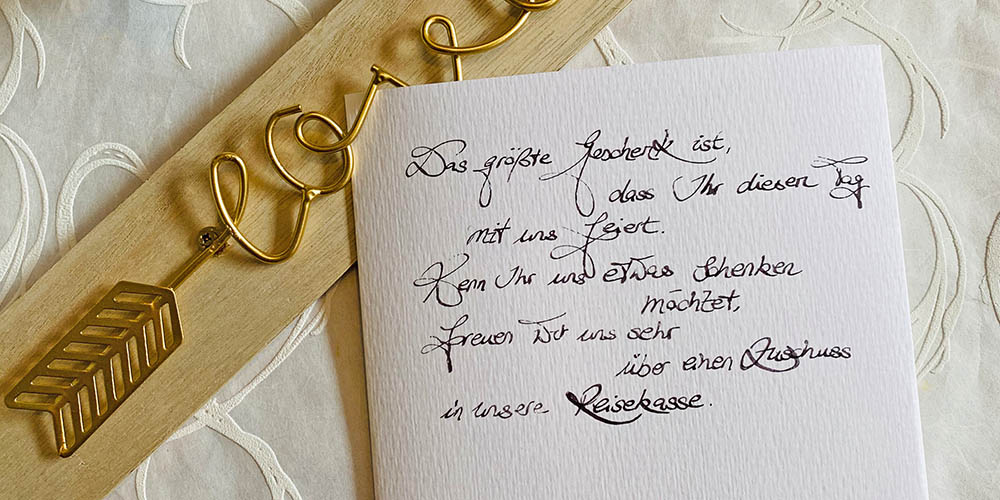 love
Das größte Geschenk ist,
dass Ihr diesen Tag
mit uns feiert.
Wenn Ihr uns etwas schenken
möchtet,
freuen wir uns sehr
über einen Zuschuss
in unsere Reisekasse.